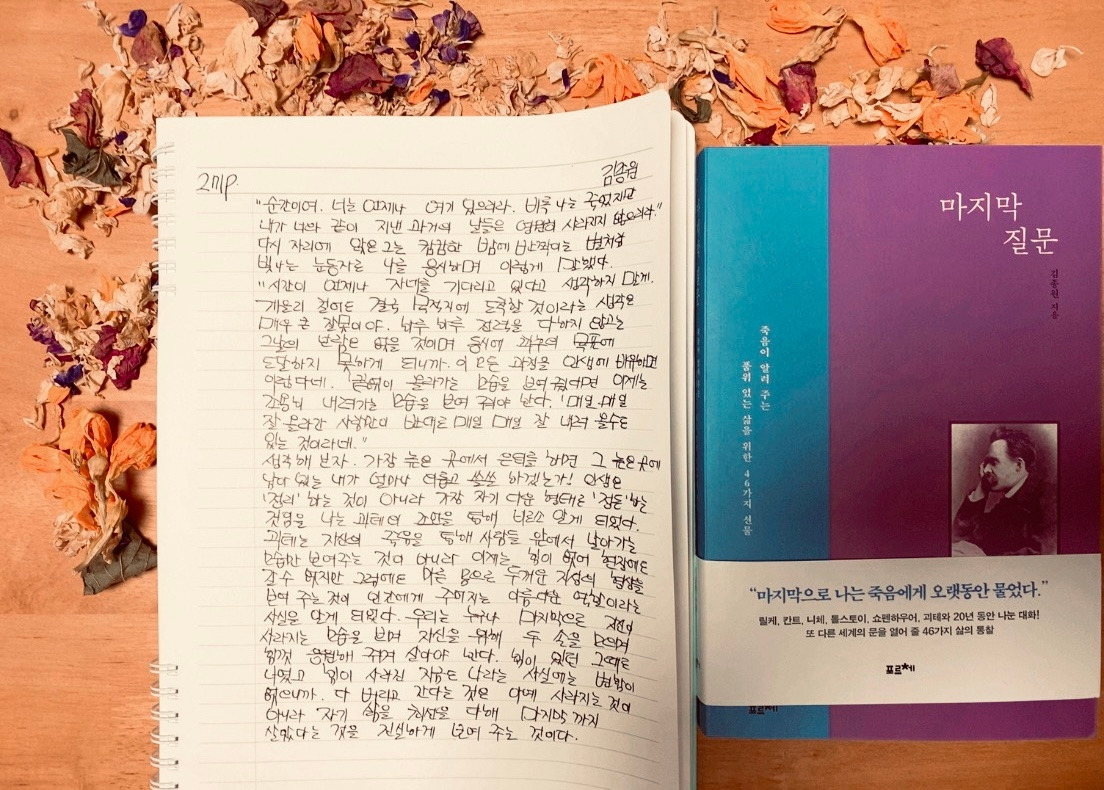 김종원
271p.
"순간이여. 너는 언제나 여기 있으리라. 비록 나는 죽었지만
내가 너와 같이 지낸 과거의 날들은 영원히 사라지지 않으리라."
다시 자리에 앉은 그는 캄캄한 밤에 반짝이는 별처럼
빛나는 눈동자로 나를 응시하며 이렇게 말했다.
"시간이 언제나 자네를 기다리고 있다고 생각하지 말게.
게을리 걸어도 결국 목적지에 도착할 것이라는 생각은
매우 큰 잘못이야. 하루 하루 전력을 다하지 않고는
그날의 보람은 없을 것이며 동시에 최후의 목표에
도달하지 못하게 되니까. 이 모든 과정을 인생에 비유하면
이렇다네. '끝없이 올라가는 모습을 보여줬다면 이제는
조용히 내려가는 모습을 보여 줘야 한다.' 매일 매일
잘 올라간 사람만이 반대로 매일 매일 잘 내려 올수도
있는 것이라네."
생각해 보자. 가장 높은 곳에서 은퇴를 하면 그 높은곳에
남아 있는 내가 얼마나 어렵고 쓸쓸 하겠는가! 인생은
'정리' 하는 것이 아니라 가장 자기 다운 형태로 '정돈'하는
것임을 나는 괴테의 조언을 통해 비로소 알게 되었다.
괴테는 자신의 죽음을 통해 사람들 앞에서 날아가는
모습만 보여주는 것이 아니라 이제는 힘이 없어 현장에도
갈수 없지만 그럼에도 마음 놓으로 두거운 지성의
보여 주는것이 인간에게 주어지는 아름다운 역할이라는
사실을 알게 되었다. 우리는 누구나 마지막으로 점점
사라지는 모습을 보며 자신을 위해 두 손을 모으며
힘껏 응원해 줘며 살아야 한다. 힘이 있던 그때도
나였고 힘이 사라진 지금도 나라는 사실에는 변함이
없으니까. 다 버리고 간다는 것은 아예 사라지는 것이
아니라 자기 삶을 최선을 다해 마지막까지
살았다는 것을 진실하게 보여 주는 것이다.
마지막
질문
김종원 지음
죽음이 알려 주는
품위 있는 삶을 위한 46가지 선물
"마지막으로 나는 죽음에게 오랫동안 물었다."
릴케, 칸트, 니체, 톨스토이, 쇼펜하우어, 괴테와 20년 동안 나눈 대화!
또 다른 세계의 문을 열어 줄 46가지 삶의 통찰
포르체
포르체